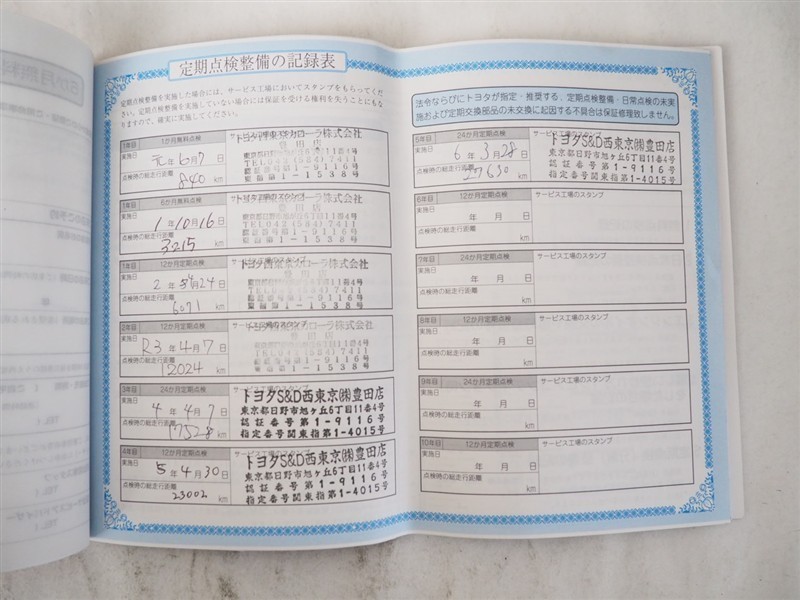 定期点検整備の記録表
定期点検整備を実施した場合には、サービス工場においてスタンプをもらってください。定期点検整備を実施していない場合には保証を受ける権利を失うことにもなりますので、確実に実施してください。
1年目 1か月無料点検
実施日 元年6月7日
点検時の総走行距離
840 km
トヨタ西東京カローラ株式会社
豊田店
東京都日野市旭が丘6丁目11番4号
TEL042(584)7411
認証番号第1-9116号
指定番号第1-1538号
1年目 6か月無料点検 サービス工場のスタンプ
実施日 1年10月16日
点検時の総走行距離
3215 km
トヨタ西東京カローラ株式会社
豊田店
東京都日野市旭が丘6丁目11番4号
TEL042(584)7411
認証番号第1-9116号
指定番号第1-1538号
1年目 12か月定期点検
実施日 2年3月24日
点検時の総走行距離
6071 km
トヨタ西東京カローラ株式会社
豊田店
東京都日野市旭が丘6丁目11番4号
TEL042(584)7411
認証番号第1-9116号
指定番号第1-1538号
2年目 12か月定期点検 サービス工場のスタンプ
実施日 R3年4月7日
点検時の総走行距離
12024 km
トヨタ西東京カローラ株式会社
豊田店
東京都日野市旭が丘6丁目11番4号
TEL042(584)7411
認証番号第1-9116号
指定番号第1-1538号
3年目 24か月定期点検 サービス工場のスタンプ
実施日 4年4月7日
点検時の総走行距離
17528 km
トヨタS&D西東京㈱豊田店
東京都日野市旭ヶ丘6丁目11番4号
認証番号第1-9116号
指定番号関東指第1-4015号
4年目 12か月定期点検 サービス工場のスタンプ
実施日 5年4月30日
点検時の総走行距離
23002 km
トヨタS&D西東京㈱豊田店
東京都日野市旭ヶ丘6丁目11番4号
認証番号第1-9116号
指定番号関東指第1-4015号
法令ならびにトヨタが指定・推奨する、定期点検整備・日常点検の未実施および定期交換部品の未交換に起因する不具合は保証修理致しません。
5年目 24か月定期点検 サービス工場のスタンプ
実施日 6年3月28日
点検時の総走行距離
27630 km
トヨタS&D西東京㈱豊田店
東京都日野市旭ヶ丘6丁目11番4号
認証番号第1-9116号
指定番号関東指第1-4015号
6年目 12か月定期点検 サービス工場のスタンプ
実施日 年 月 日
点検時の総走行距離
km
7年目 24か月定期点検 サービス工場のスタンプ
実施日 年 月 日
点検時の総走行距離
km
8年目 12か月定期点検 サービス工場のスタンプ
実施日 年 月 日
点検時の総走行距離
km
9年目 24か月定期点検 サービス工場のスタンプ
実施日 年 月 日
点検時の総走行距離
km
10年目 12か月定期点検 サービス工場のスタンプ
実施日 年 月 日
点検時の総走行距離
km